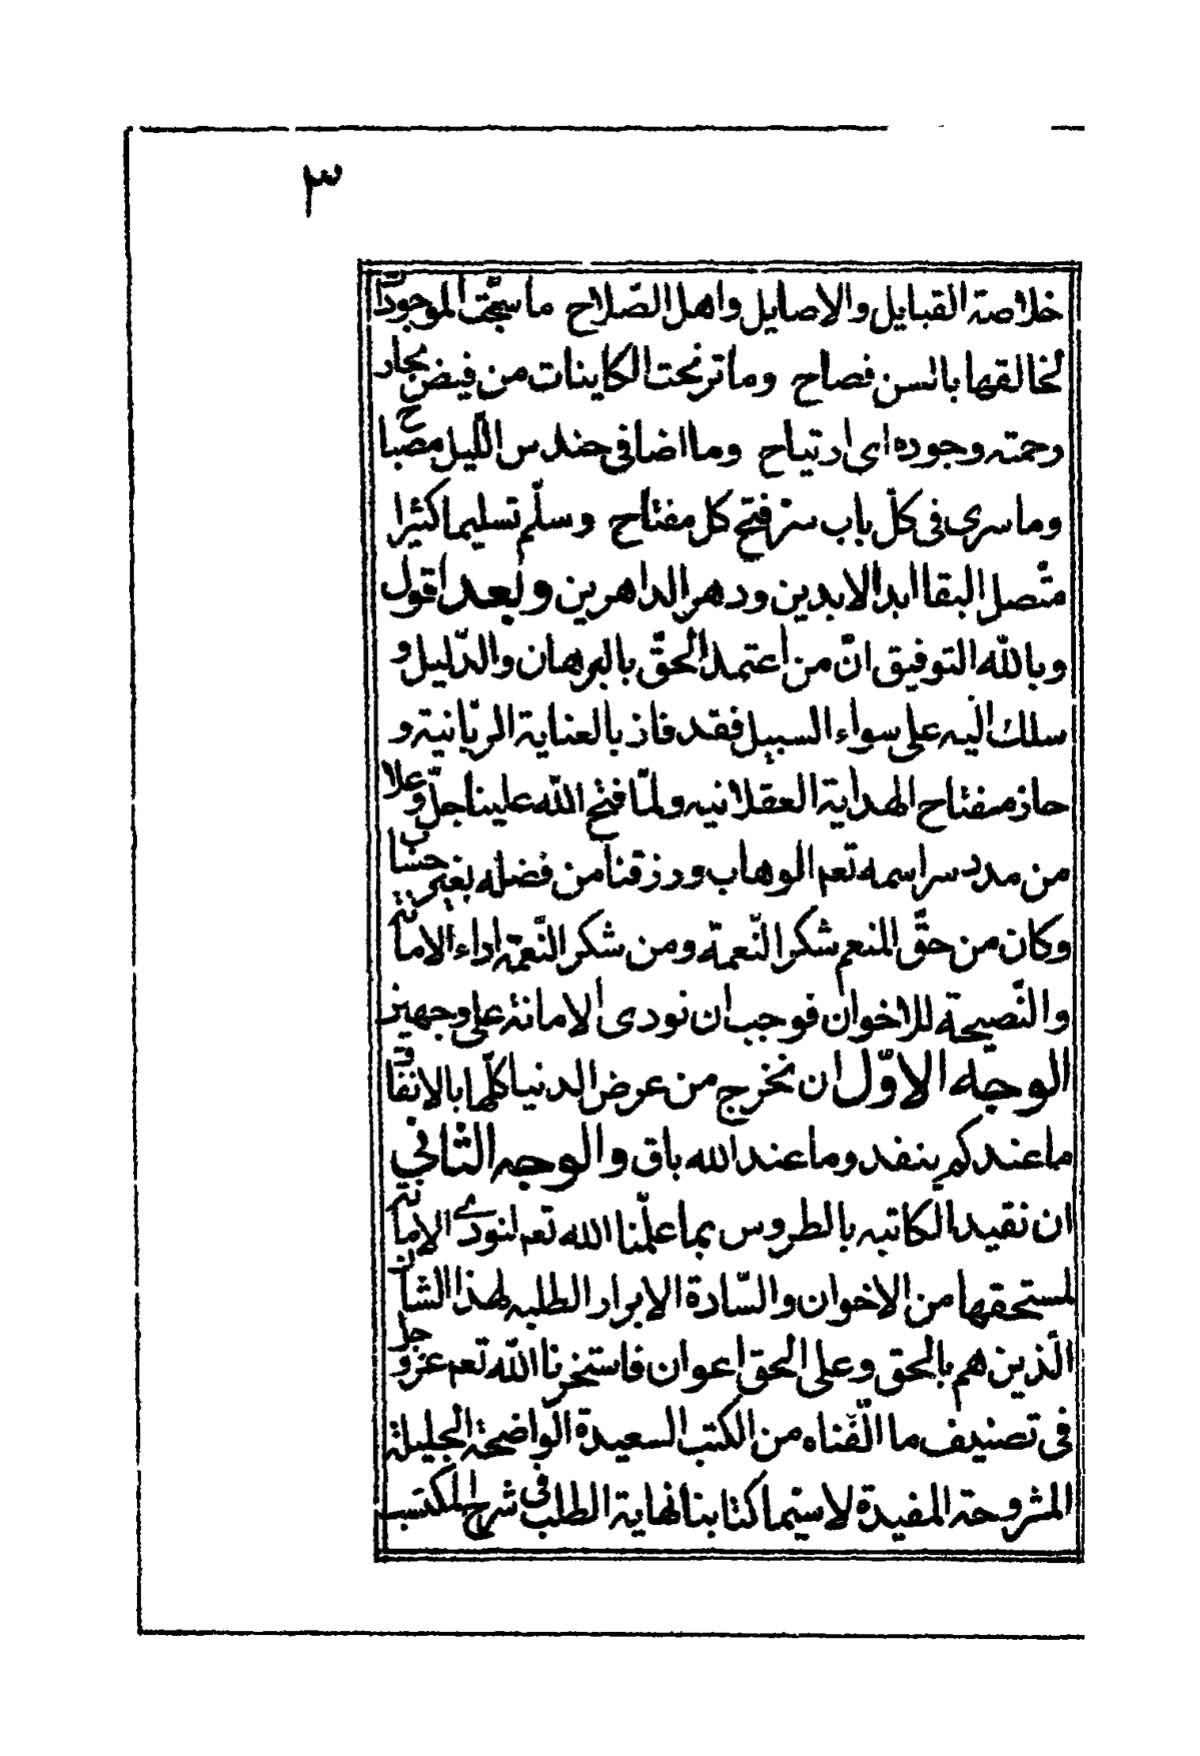 ٣
خلاصة القبايل والاصايل واهل الصّلاح ما سبّحت الموجودات
لخالقها بالسن فصاح وما ترنحت الكاينات من فيض بحار
رحمته وجوده اى ارتياح وما اضا فى حندس اللّيل مصباح
وما سرى فى كلّ باب سرّ فتح كل مفتاح وسلّم تسليما كثيرا
متّصل البقا ابد الابدين ودهر الداهرين وبعد اقول
وبالله التوفيق انّ من اعتمد الحقّ بالبرهان والدّليل و
سلك اليه على سواء السبيل فقد فاز بالعناية الربّانية و
حاز مفتاح الهداية العقلانيه ولمّا فتح الله علينا جلّ وعلا
من مدد سر اسمه تعم الوهاب ورزقنا من فضله بغير حساب
وكان من حقّ المنعم شكر النّعمة ومن شكر النّعمة اداء الامانة
والنّصيحة للاخوان فوجب ان نودى الامانة على وجهين
الوجه الاوّل ان نخرج من عرض الدنيا كلّها بالانفاق
ما عندكم ينفد وما عند الله باق والوجه الثانى
ان نقيد الكاتبه بالطروس بما علّمنا الله تعم لنودى الامانة
لمستحقها من الاخوان والسّادة الابرار الطلبه لهذا الشان
الّذين هم بالحق وعلى الحق اعوان فاستخرنا الله تعم عز وجل
فى تصنيف ما الّفناه من الكتب السعيدة الواضحة الجليلة
المشروحة المفيدة لا سيّما كتابنا نهاية الطلب فى شرح المكتسب